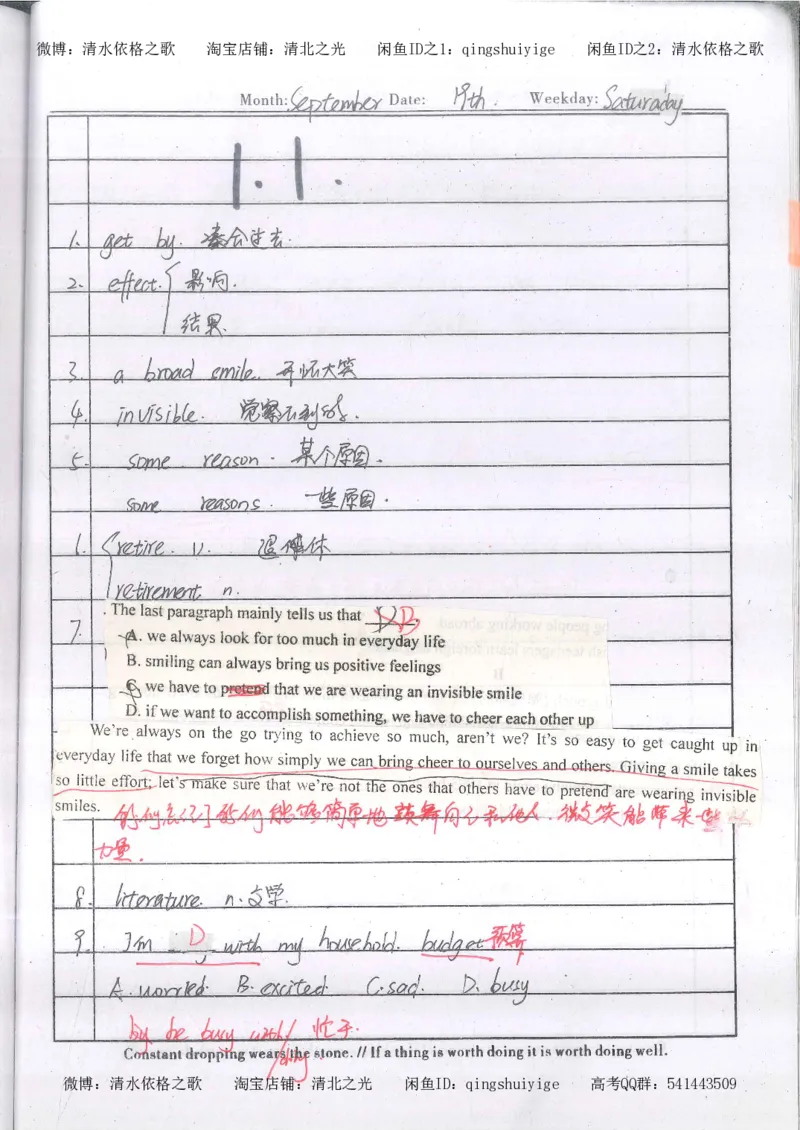 微博：清水依格之歌 淘宝店铺：清北之光 闲鱼ID之1：qingshuiyige 闲鱼ID之2：清水依格之歌
Month: September Date: 19th. Weekday: Saturaday
1. 1.
1. get by. 凑合过去.
2. effect. { 影响.
结果.
3. a broad smile. 开怀大笑
4. invisible. 觉察不到的.
5. some reason. 某个原因.
some reasons. 一些原因.
6. { retire. v. 退休
retirement n.
7. The last paragraph mainly tells us that B.
A. we always look for too much in everyday life
B. smiling can always bring us positive feelings
C. we have to pretend that we are wearing an invisible smile
D. if we want to accomplish something, we have to cheer each other up
We're always on the go trying to achieve so much, aren't we? It's so easy to get caught up in
everyday life that we forget how simply we can bring cheer to ourselves and others. Giving a smile takes
so little effort; let's make sure that we're not the ones that others have to pretend are wearing invisible
smiles.
我们忘记了我们能够简单地鼓舞自己和他人. 微笑能带来一些
力量.
8. literature. n. 文学.
9. I'm D with my household. budget 预算
A. worried. B. excited. C. sad. D. busy
be busy with/ 忙于.
doing
Constant dropping wears the stone. // If a thing is worth doing it is worth doing well.
微博：清水依格之歌 淘宝店铺：清北之光 闲鱼ID：qingshuiyige 高考QQ群：541443509